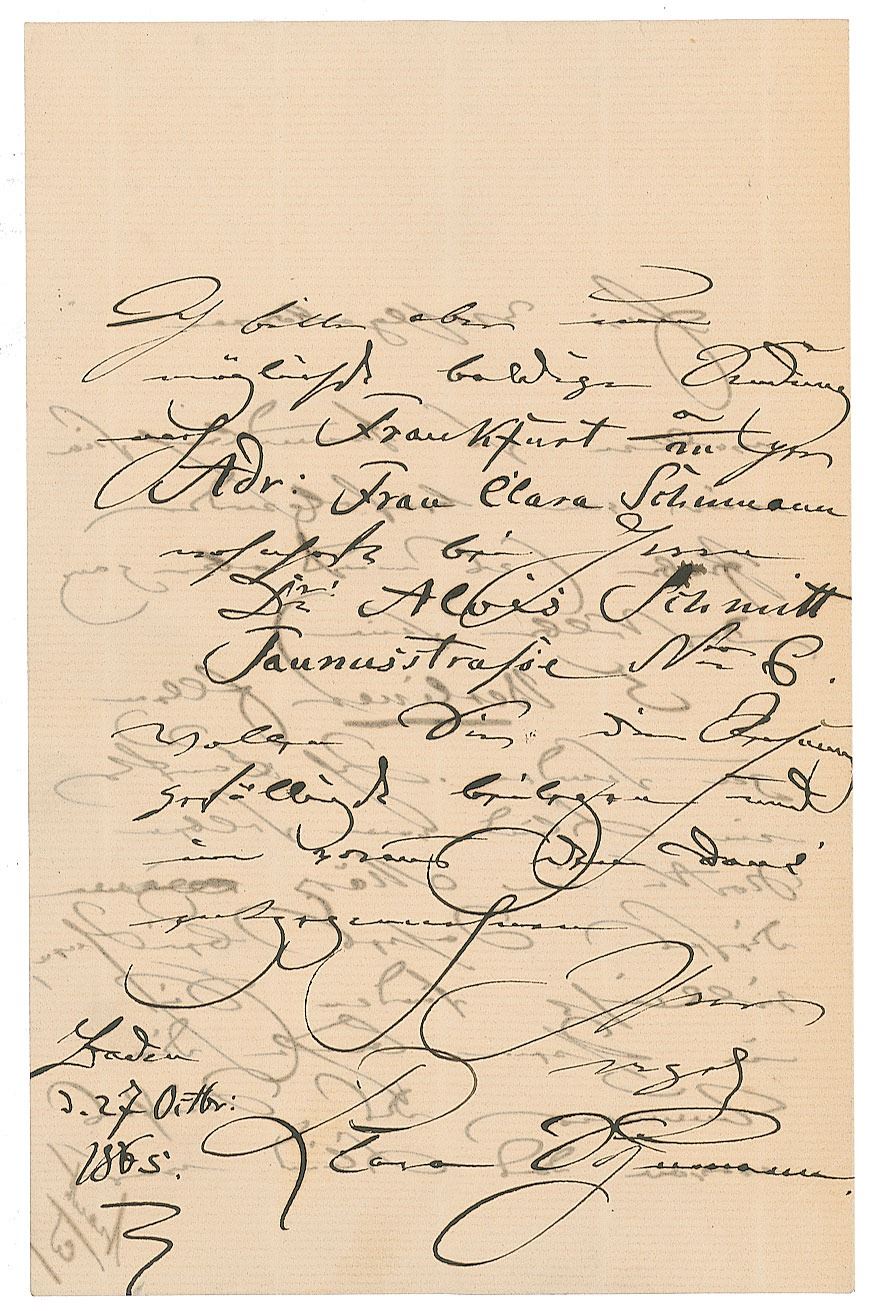 Ich bitte aber um
möglichst baldige Sendung
nach Frankfurt a/m
Adr: Frau Clara Schumann
wohnhaft bei Herrn
Dr: Aloys Schmitt
Taunusstraße No 6.
Wollen Sie die Rechnung
gefälligst beilegen und
im voraus den Dank
entgegennehmen
Ihrer
ergeb
Clara Schumann.
Baden
d. 27 Octbr:
1865.